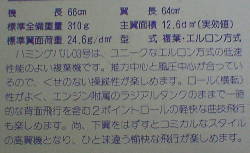 機長 66cm 翼長 64cm
機全備重量 310g 主翼面積 12.6d㎡(実効値)
標準翼面荷重 24.6g/d㎡ 型式 複葉・エルロン方式
ハミングバル03号は、ユニークなエルロン方式の低速
性能のよい複葉機です。推力中心と風圧中心が合ってい
るので、くせのない操縦性が楽しめます。ロール(横転)
性がよく、エンジン附属のラジアルタンクのままで一律
的な背面飛行を含む2ポイントロールの軽快な曲技飛行
も楽しめます。尚、下翼をはずすとコミカルなスタイル
の高翼機となり、ひと味違う愉快な飛行が楽しめます。